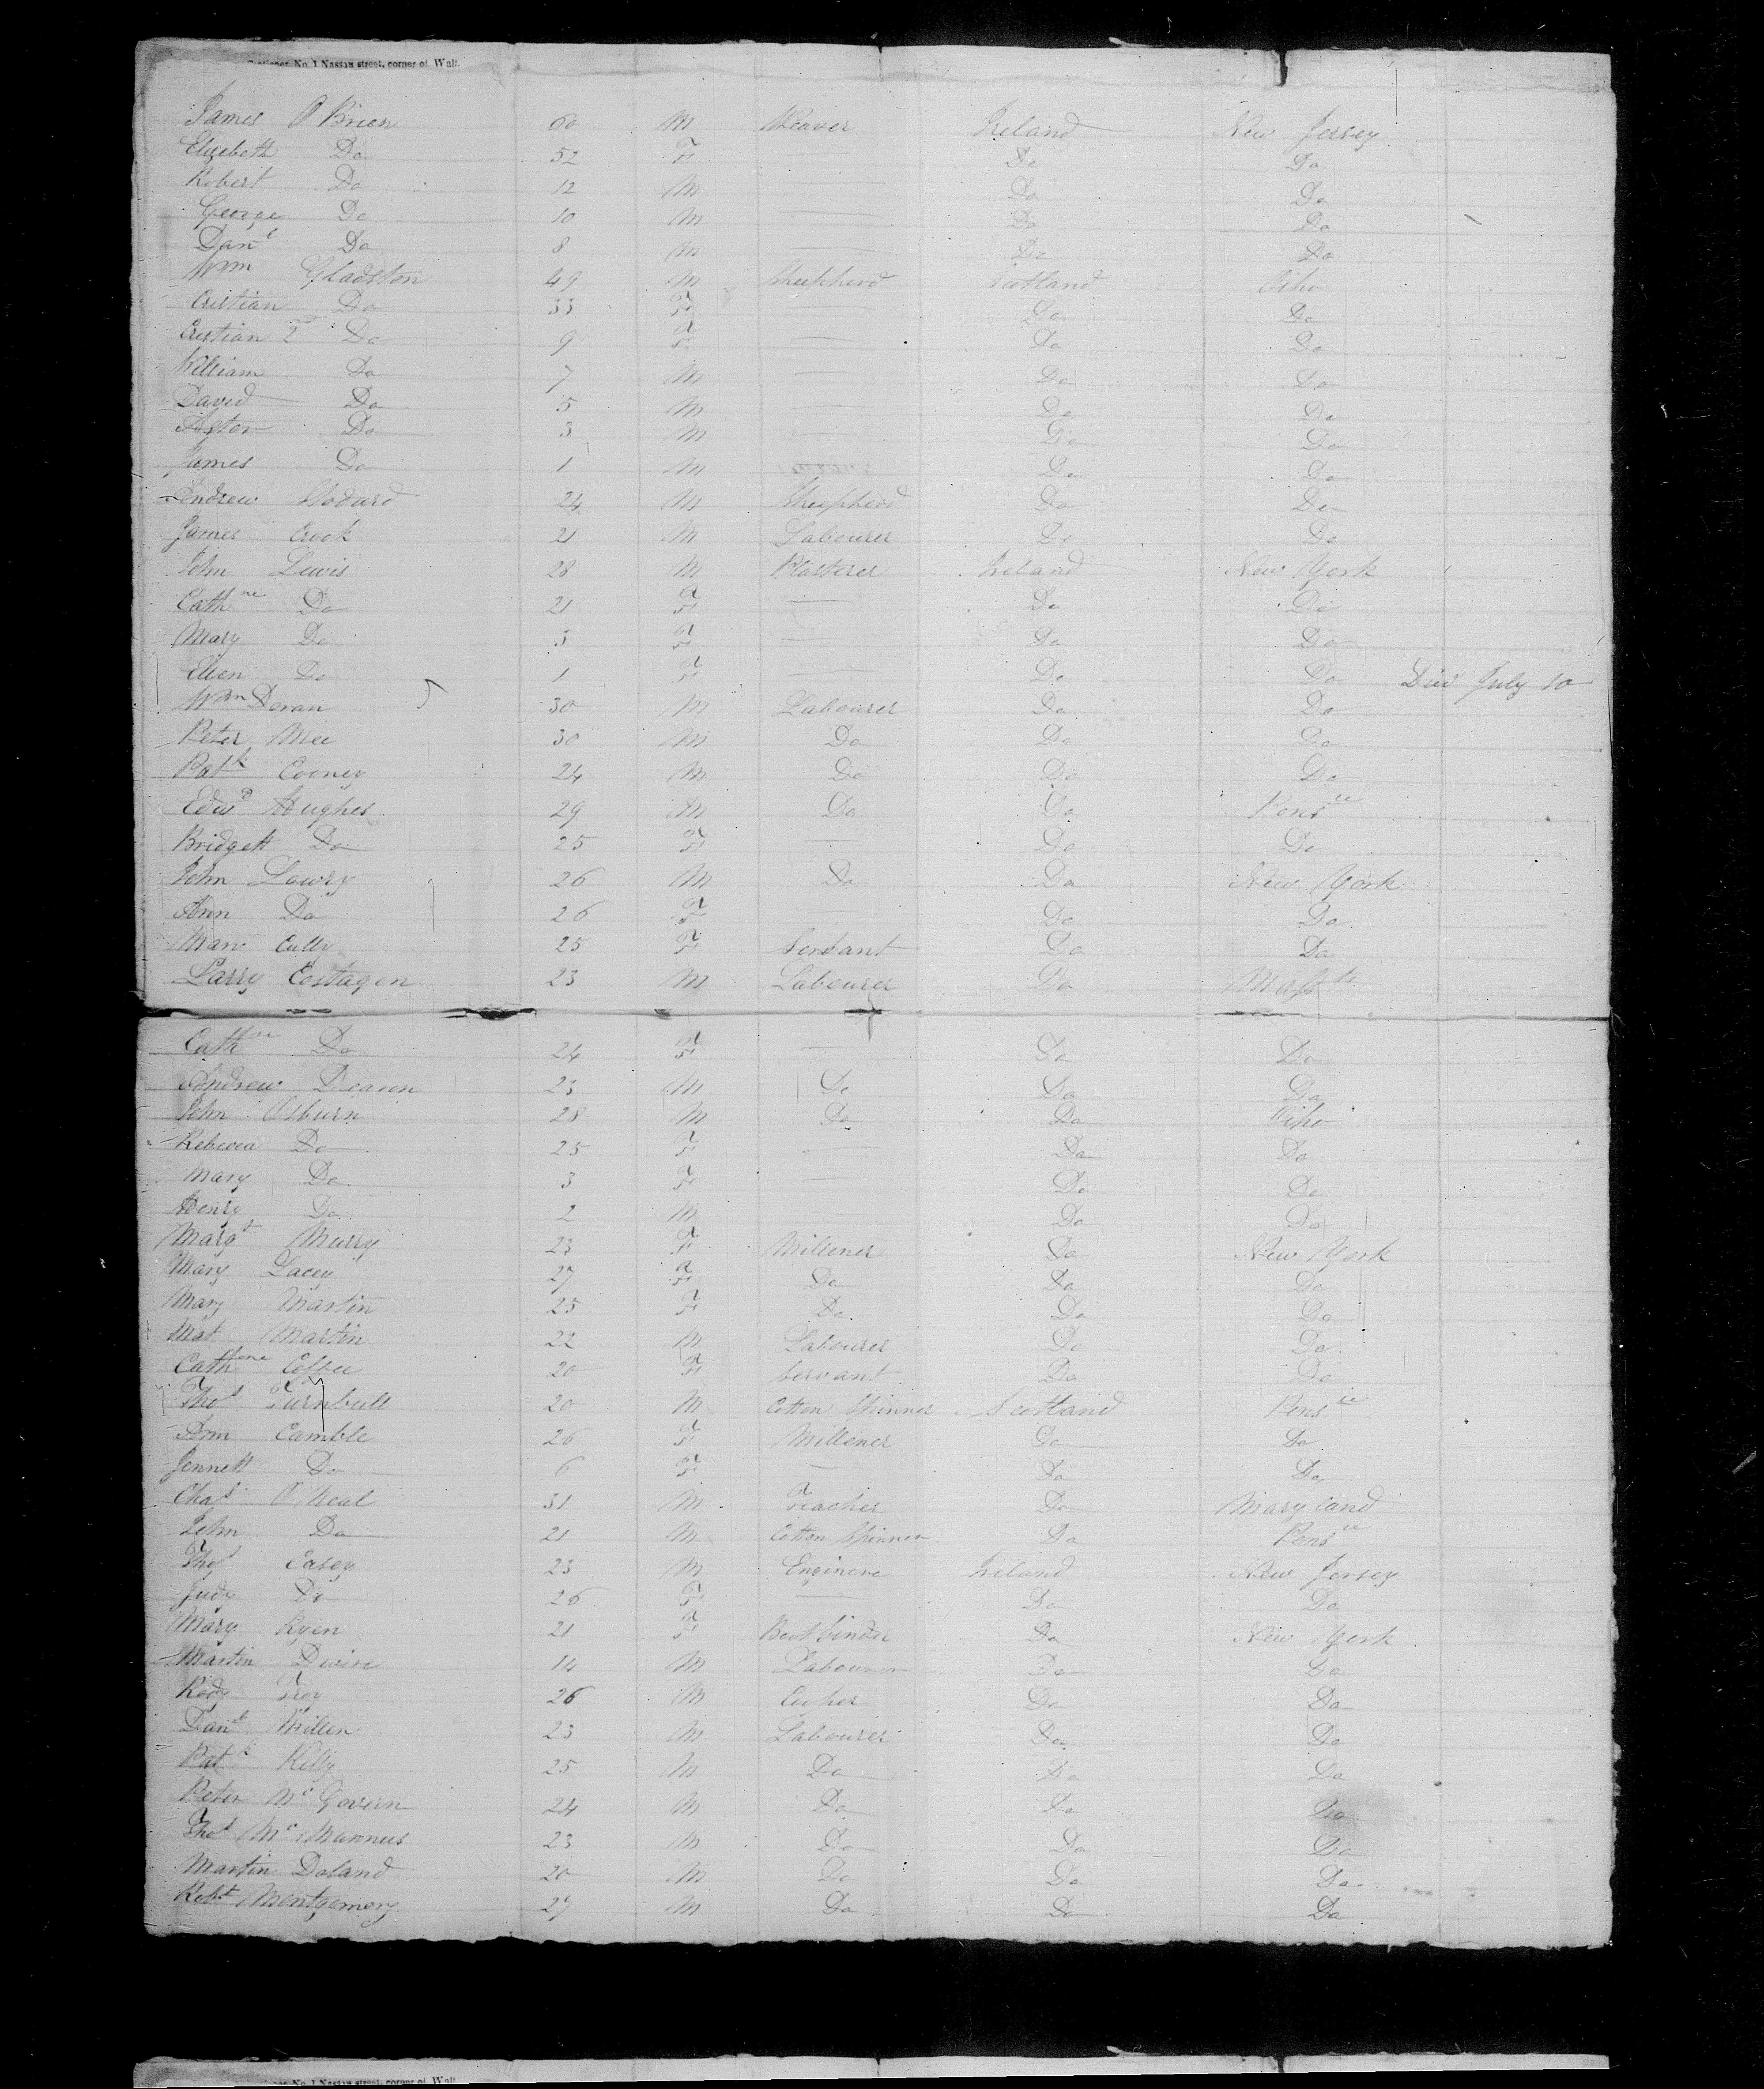 Stationer, No. 1 Nassau street, corner of Wall.
James O Brien 60 M Weaver Ireland New Jersey
Elizebeth Do 52 F — Do Do
Robert Do 12 M — Do Do
George Do 10 M — Do Do
Danl Do 8 M — Do Do
Wm Gladston 49 M Sheepherd Scotland Oiho
Cristian Do 33 F — Do Do
Cristian 2nd Do 9 F — Do Do
William Do 7 M — Do Do
David Do 5 M — Do Do
Do 3 M — Do Do
James Do 1 M Do Do
Andrew Stodard 24 M Sheepherd Do Do
James Crook 21 M Labourer Do Do
John Lewis 28 M Plasterer Ireland New York
Cathne Do 21 F — Do Do
Mary Do 3 F — Do Do
Ellen Do 1 F — Do Do Died July 10
Wm Doran 30 M Labourer Do Do
Peter Mee 30 M Do Do Do
Patk Cooney 24 M Do Do Do
Edwd Hughes 29 M Do Do Pensie
Bridgett Do 25 F — Do Do
John Lowry 26 M Do Do New York
Ann Do 26 F — Do Do
Mary Cully 25 F Servant Do Do
Larry Costagen 23 M Labourer Do Massts
Cathne Do 24 F — Do Do
Andrew Deacon 23 M Do Do Do
John Osburn 28 M Do Do Oiho
Rebecca Do 25 F — Do Do
Mary Do 3 F — Do Do
Henry Do 2 M Do Do
Margt Murry 23 F Millener Do New York
Mary Lacey 27 F Do Do Do
Mary Martin 25 F Do Do Do
Mat Martin 22 M Labourer Do Do
Cathene Coffee 20 F Servant Do Do
Thos Turnbull 20 M Cotton Spinner Scotland Pensie
Ann Camble 26 F Millener Do Do
Jennett Do 6 F — Do Do
Chas O Neal 31 M Teacher Do Maryland
John Do 21 M Cotton Spinner Do Pensie
Thos Casey 23 M Enginere Ireland New Jersey
Judy Do 26 F — Do Do
Mary Ryen 21 F Bootbinder Do New York
Martin Divire 14 M Labourer Do Do
Rody Troy 26 M Cooper Do Do
Danl Millen 23 M Labourer Do Do
Patk Killy 25 M Do Do Do
Peter McGovern 24 M Do Do Do
Thos McMannus 23 M Do Do Do
Martin Doland 20 M Do Do Do
Robt Montgomery 27 M Do Do Do
No. 1 Nassau street, corner of Wall